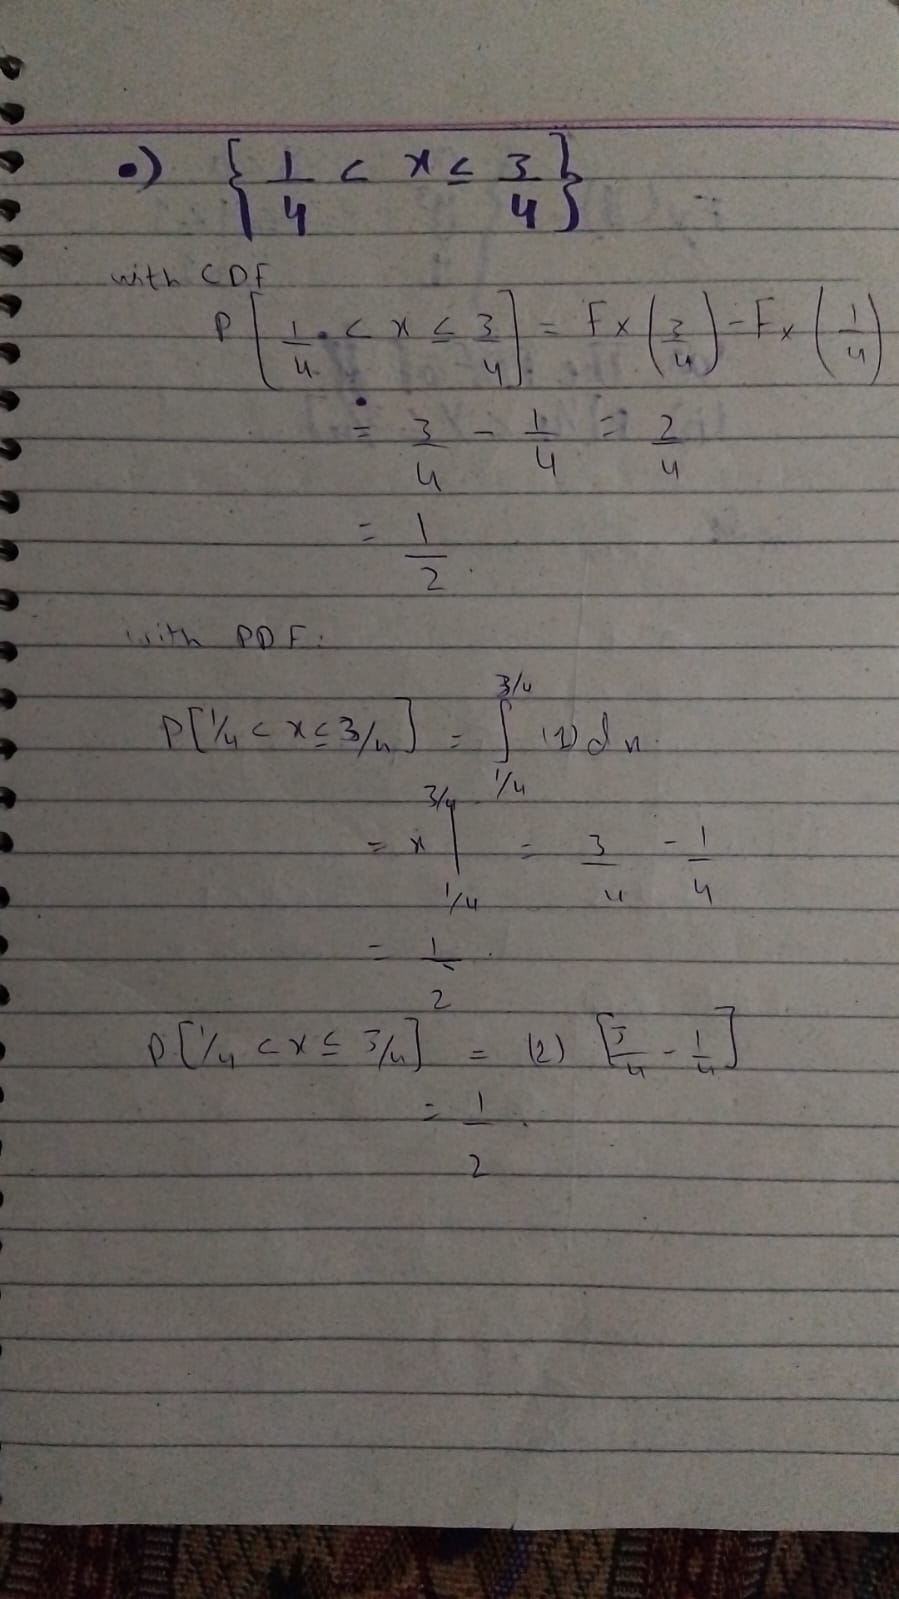 •) { 1/4 < x ≤ 3/4 }
with CDF
P [ 1/4 < x ≤ 3/4 ] = Fx (3/4) - Fx (1/4)
= 3/4 - 1/4 = 2/4
= 1/2.
with PDF:
P[1/4 < x ≤ 3/4] = ∫_{1/4}^{3/4} (1) dx.
= x |_{1/4}^{3/4} = 3/4 - 1/4
= 1/2.
P[1/4 < x ≤ 3/4] = (2) [3/4 - 1/4]
= 1/2.